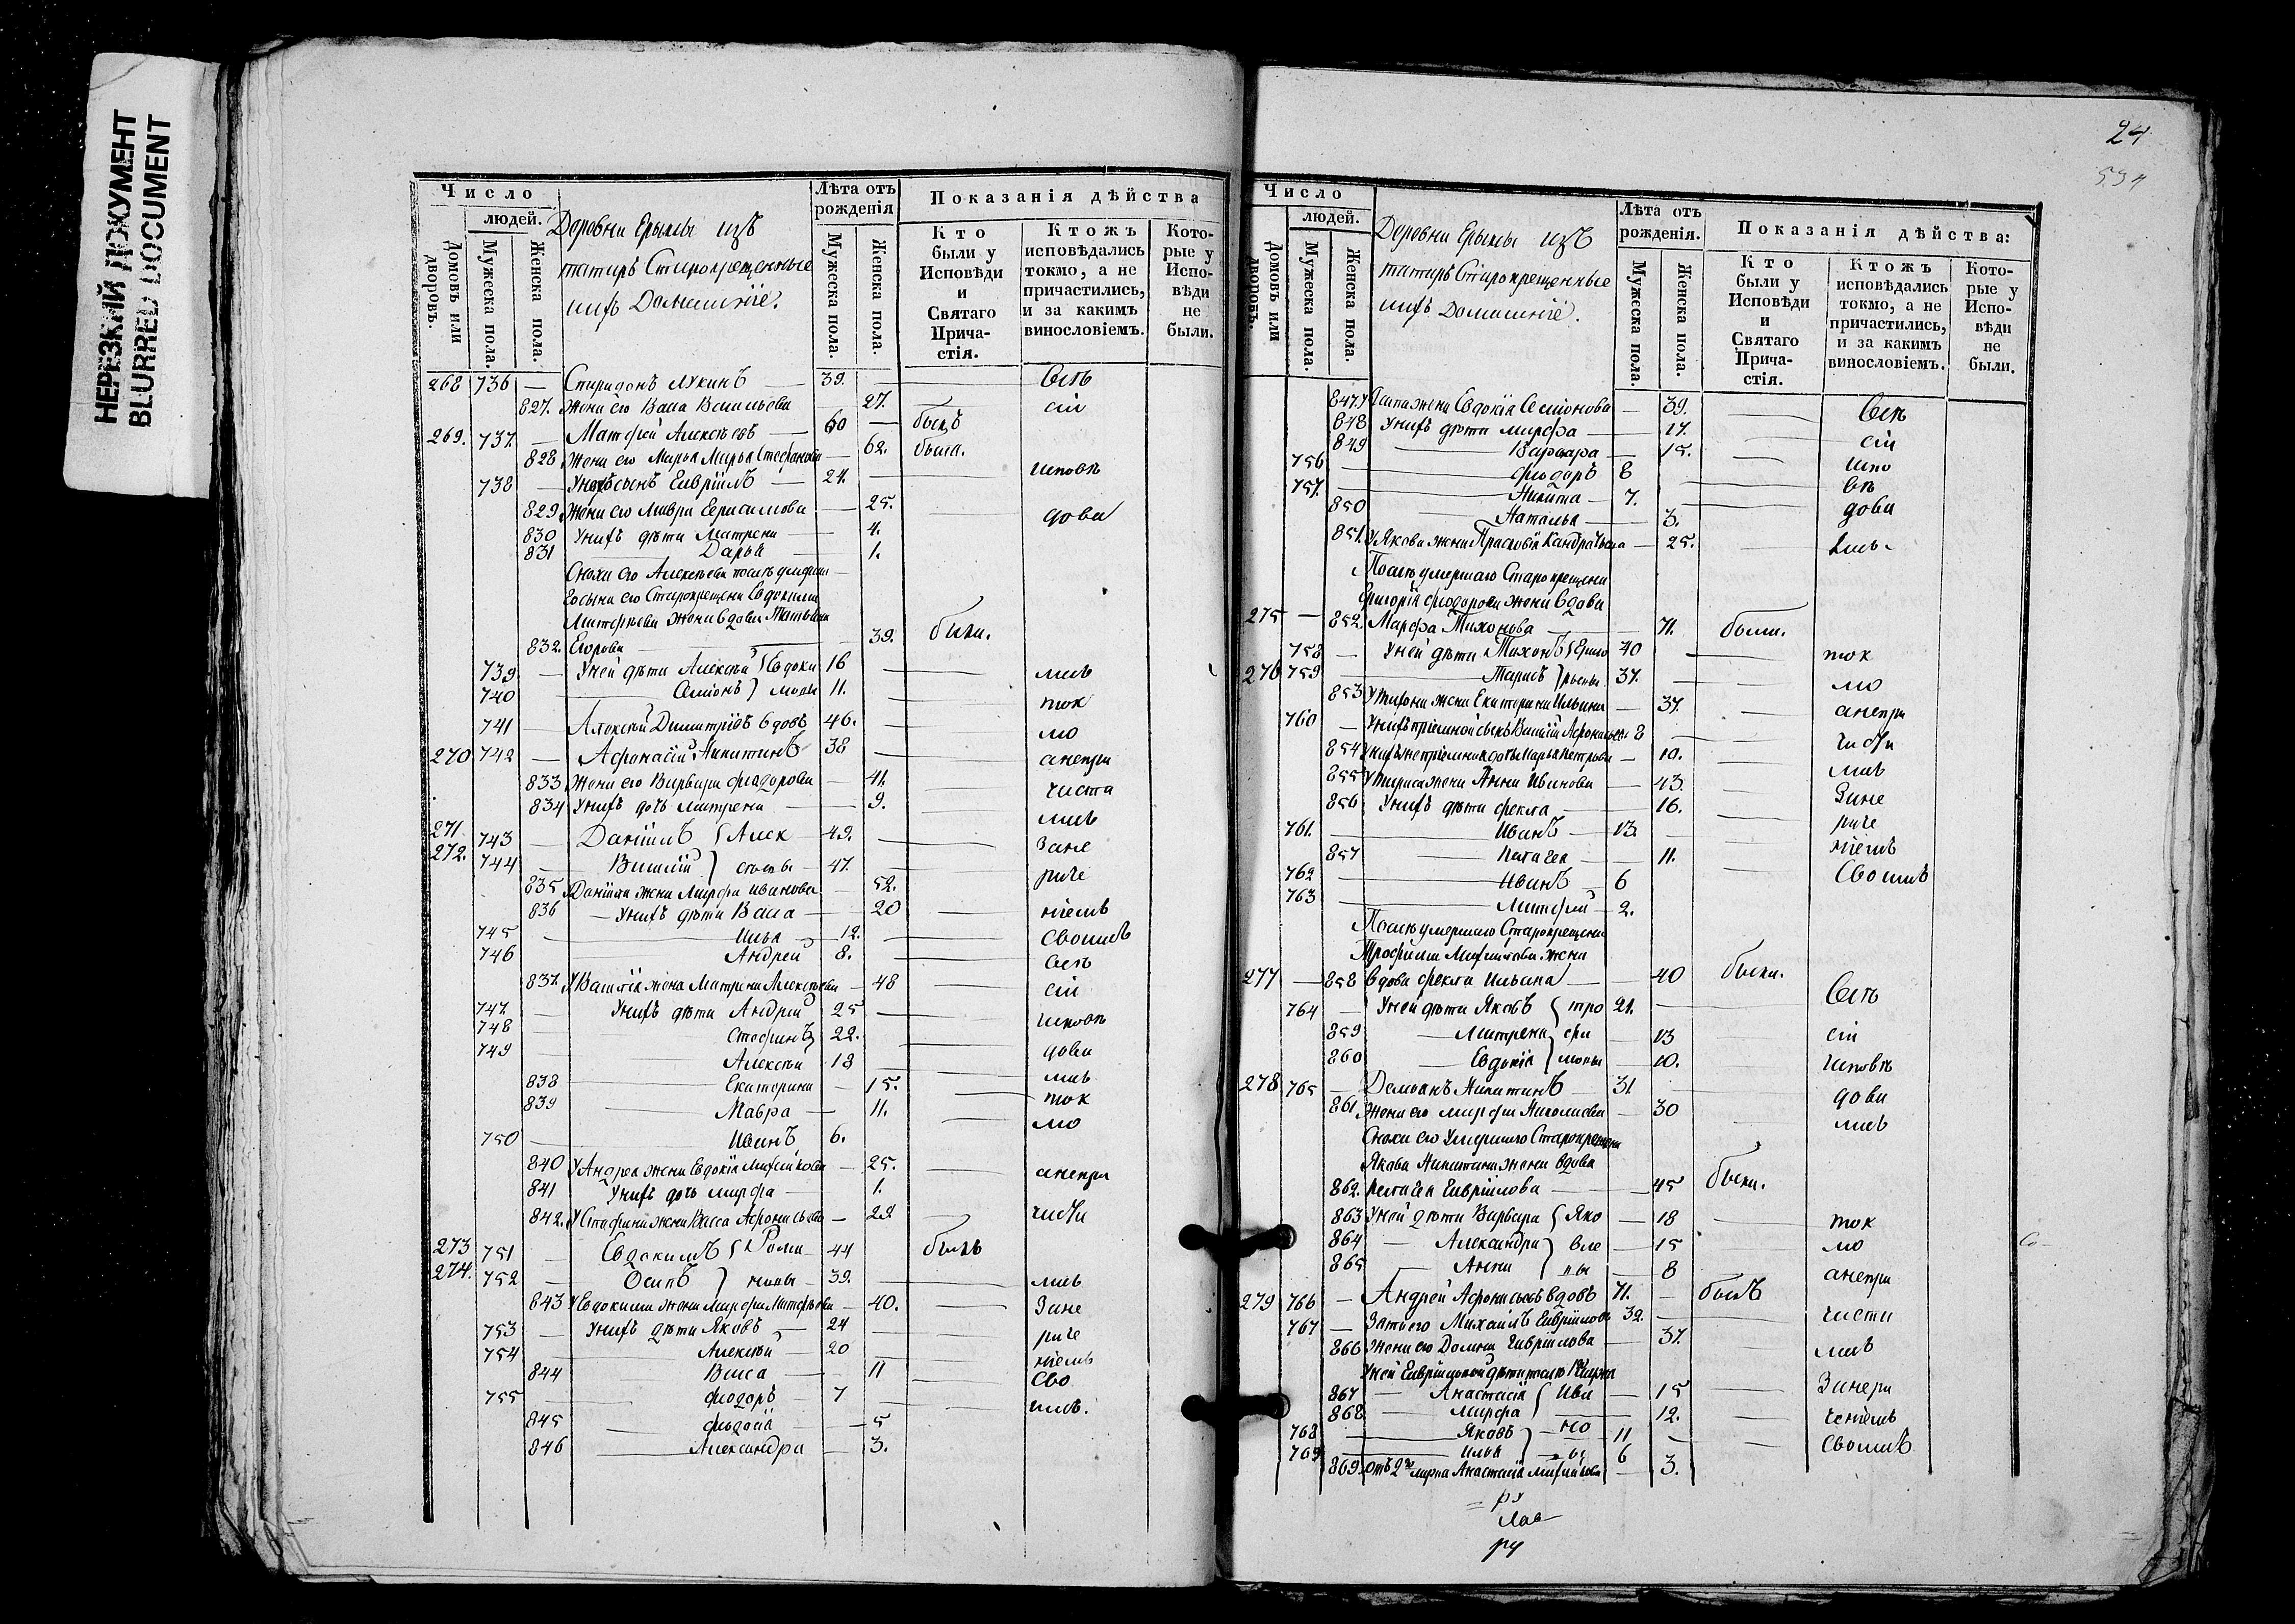 НЕРЕЗКИЙ ДОКУМЕНТ
BLURRED DOCUMENT
Число
людей.
Домовъ или дворовъ.
Мужеска пола.
Женска пола.
Деревни Ерыклы изъ
татаръ Старокрещенные
ихъ Домашніе.
Лѣта отъ рожденія
Мужеска пола.
Женска пола.
Показанія дѣйства
Кто были у Исповѣди и Святаго Прича-стія.
Ктожъ исповѣдались токмо, а не причастились, и за какимъ винословіемъ.
Кото-рые у Испо-вѣди не были.
268 736 — Спиридонъ Лукинъ — 39. — Всѣ
827. Жена его Васа Васильева — 27. — сіи
269. 737. — Матфей Алексѣевъ — 60 — былъ
828 Жена его Марья Марья Стефанова — 62. была.
738 — У нихъ сынъ Гаврiилъ — 24. — исповѣ
829. Жена его Мавра Герасимова — 25. — дова
830 У нихъ дѣти Матрена — 4.
831 — Дарья — 1.
Сноха его Алексѣева послѣ умерша
го сына его Старокрещена Евдокима
Матфѣева жена вдова Татьяна
832. Егорова — 39. были.
739 — У ней дѣти Алексѣй Евдоки 16 — лись
740 — Семіонъ мовы 11. — ток
741 — Алексѣй Димитріевъ вдовъ 46. — мо
270 742 — Афанасій Никитинъ 38 — анепри
833 Жена его Варвара Фіодорова — 41. — чиста
834 У нихъ дочь Матрена — 9. — лись
271 743 — Даніилъ Алек — 49. — Зане
272. 744 — Василій сѣевы — 47. — раче
835 У Даніила жена Марфа Иванова — 52.
836 — У нихъ дѣти Васа — 20 — ніемъ
745 — Илья — 12. — Своимъ
746 — Андрей 8. — Всѣ
837. У Василія жена Матрена Алексѣева — 48 — сіи
747. — У нихъ дѣти Андрей 25 — исповѣ
748 — Стефанъ 22. — дова
749 — Алексѣй 18 — лись
838 — Екатерина — 15. — ток
839 — Мавра — 11. — мо
750 — Иванъ 6.
840 У Андрея жена Евдокія Михайлова — 25. — анепри
841 У нихъ дочь Марфа — 1.
842. У Стефана жена Васса Афонасьева — 22 — части
273 751 — Евдокимъ Рома — 44 былъ
274. 752 — Осипъ новы — 39. — лись
843 У Евдокима жена Марфа Матфѣева — 40. — Зане
753 — У нихъ дѣти Яковъ — 24 — раче
754 — Алексѣй — 20 — ніемъ
844 — Васа — 11 — Сво
755 — Фіодоръ — 7 — имъ.
845 — Фіодосія — 5
846 — Александра — 3.
24
534
Число
людей.
Домовъ или дворовъ.
Мужеска пола.
Женска пола.
Деревни Ерыклы изъ
татаръ Старокрещенные
ихъ Домашніе.
Лѣта отъ рожденія.
Мужеска пола.
Женска пола.
Показанія дѣйства:
Кто были у Исповѣди и Святаго Прича-стія.
Ктожъ исповѣдались токмо, а не причастились, и за какимъ винословіемъ.
Кото-рые у Испо-вѣди не были.
847. У Осипа жена Евдокія Семіонова — 39. — Всѣ
848 У нихъ дѣти Марфа — 17. — сіи
849 — Варвара — 15. — испо
756 — Фіодоръ 8 — вѣ
757. — Никита — 7. — дова
850 — Наталья — 3.
851. У Якова жена Прасковія Кандратьева — 25. — лись
Послѣ умершаго Старокрещена
Григорія Фіодорова жена вдова
275 — 852. Марфа Тихонова — 71. были.
758 — У ней дѣти Тихонъ Григо 40 — ток
276 759 — Тарасъ рьевы 37. — мо
853 У Тихона жена Екатерина Ильина — 37. — анепри
760 — У нихъ пріемной сынъ Василій Афонасьевъ 8 — части
854 У нихъ же пріемшая дочь Марья Петрова — 10. — лись
855 У Тараса жена Анна Иванова — 43. — Зане
856 У нихъ дѣти Фекла — 16. — раче
761. — Иванъ — 13. — ніемъ
857 — Пелагея — 11. — Своимъ
762 — Иванъ — 6
763 — Матфей — 2.
Послѣ умершаго Старокрещена
Трофима Михайлова жена
277 — 858 вдова Фекла Ильина — 40 были.
764 — У ней дѣти Яковъ тро 21. — Всѣ
859 — Матрена фи — 13 — сіи
860 — Евдокія мовы — 10. — исповѣ
278 765 — Демьянъ Никитинъ — 31. — дова
861. Жена его Марфа Николаева — 30 — лись
Сноха его умершаго Старокрещена
Якова Никитина жена вдова
862. Пелагея Гаврiилова — 45 были.
863 У ней дѣти Варвара Яко — 18 — ток
864 — Александра вле — 15 — мо
865 — Анна вы — 8 — анепри
279 766 — Андрей Афонасьевъ вдовъ 71. — былъ
767 — Зять его Михаилъ Гаврiиловъ 32. — части
866 Жена его Домна Гаврiилова — 37. — лись
867 — Анастасія Ива — 15 — Занера
868 — Марфа — 12. — ченіемъ
768 — Яковъ — но — 11 — Своимъ
769 — Илья — вы 6
869. Отъ 2го мужа Анастасія Михайлова — 3.